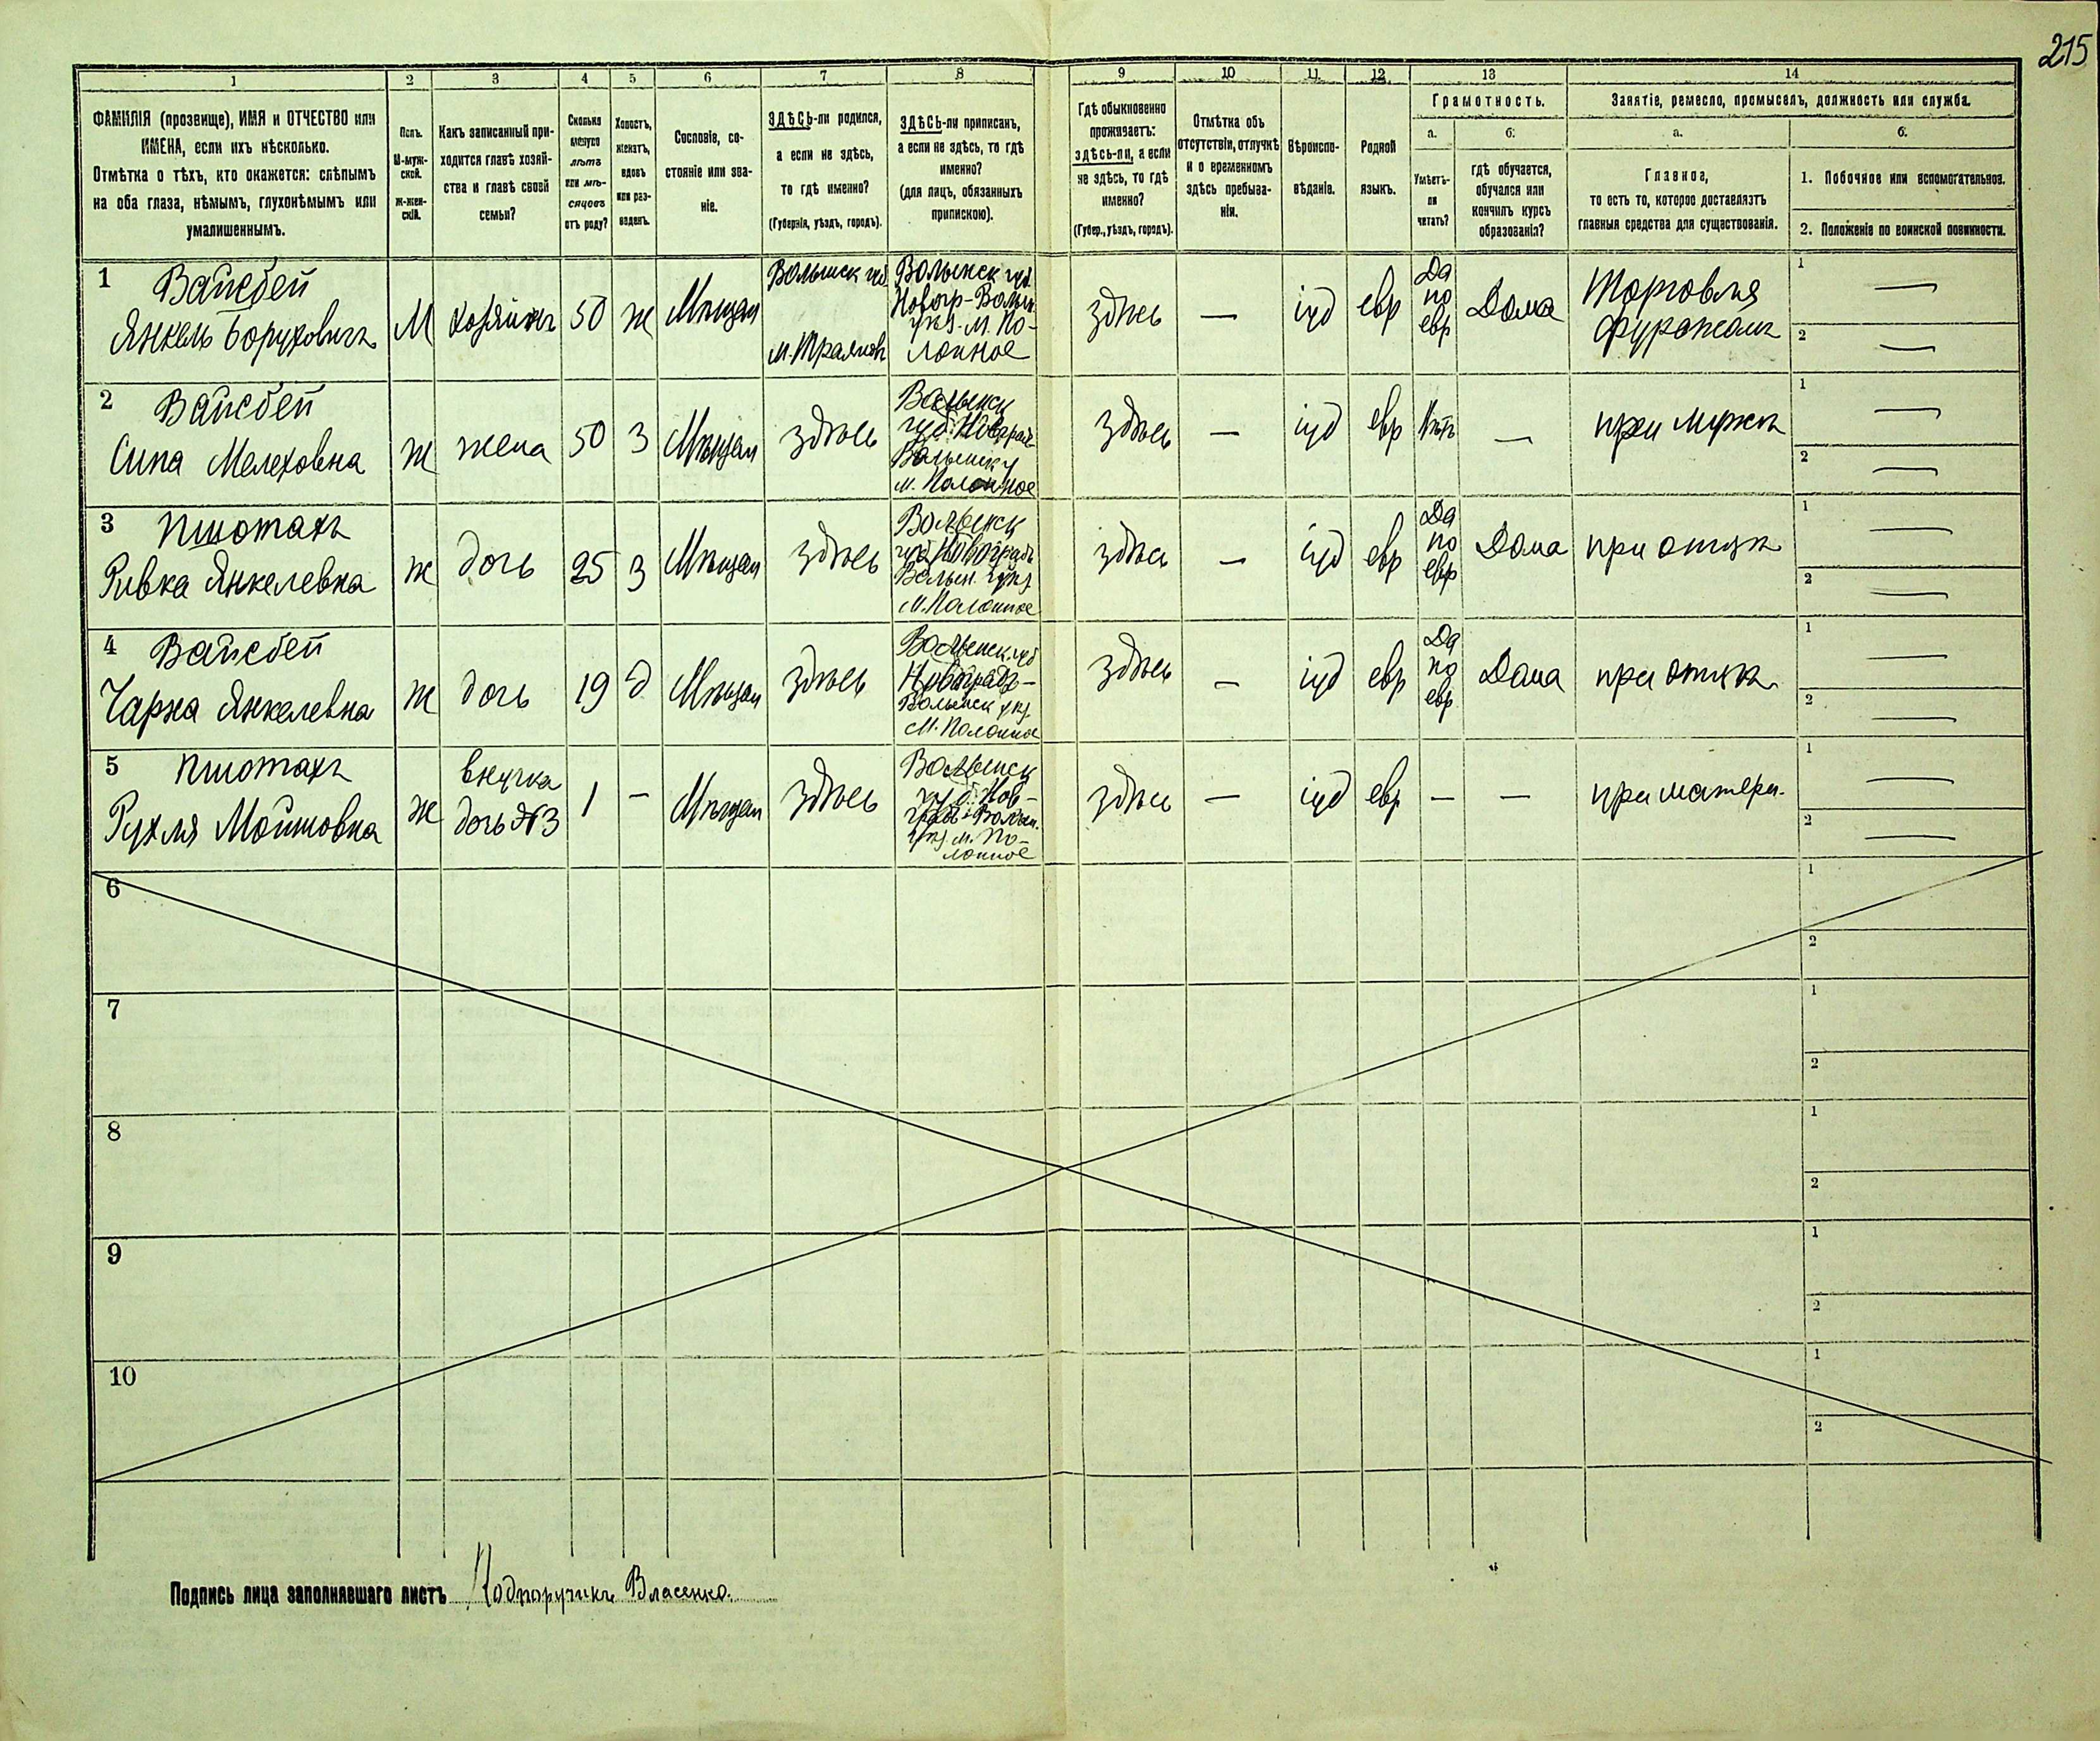 215
1 2 3 4 5 6 7 8 9 10 11 12 13 14
ФАМИЛІЯ (прозвище), ИМЯ и ОТЧЕСТВО или
ИМЕНА, если ихъ нѣсколько.
Отмѣтка о тѣхъ, кто окажется: слѣпымъ
на оба глаза, нѣмымъ, глухонѣмымъ или
умалишеннымъ.
Полъ.
М-муж-
ской.
Ж-жен-
скій.
Какъ записанный при-
ходится главѣ хозяй-
ства и главѣ своей
семьи?
Сколько
минуло
лѣтъ
или мѣ-
сяцевъ
отъ роду?
Холостъ,
женатъ,
вдовъ
или раз-
веденъ.
Сословіе, со-
стояніе или зва-
ніе.
ЗДѢСЬ-ли родился,
а если не здѣсь,
то гдѣ именно?
(Губернія, уѣздъ, городъ).
ЗДѢСЬ-ли приписанъ,
а если не здѣсь, то гдѣ
именно?
(для лицъ, обязанныхъ
припискою).
Гдѣ обыкновенно
проживаетъ:
здѣсь-ли, а если
не здѣсь, то гдѣ
именно?
(Губер., уѣздъ, городъ).
Отмѣтка объ
отсутствіи, отлучкѣ
и о временномъ
здѣсь пребыва-
ніи.
Вѣроиспо-
вѣданіе.
Родной
языкъ.
Грамотность.
а.
Умѣетъ-
ли
читать?
б.
гдѣ обучается,
обучался или
кончилъ курсъ
образованія?
Занятіе, ремесло, промыселъ, должность или служба.
а.
Главное,
то есть то, которое доставляетъ
главныя средства для существованія.
б.
1. Побочное или вспомогательное.
2. Положеніе по воинской повинности.
1
Вайсбейн
Янкель Борухович
М
хозяинъ
50
ж
Мѣщан
Волынск губ
Волынск губ.
Новогр-Волын.
уѣз. м. По-
лонное
здѣсь
—
іуд
евр
Да
по
евр
Дома
Торговля
фуражомъ
1 —
2 —
2
Вайсбей
Сипа Мелеховна
ж
жена
50
З
Мѣщан
здѣсь
Волынск
м. Полонное
здѣсь
—
іуд
евр
Нѣтъ
—
при мужѣ
1 —
2 —
3
Пшотахъ
Ривка Янкелевна
ж
дочь
25
З
Мѣщан
здѣсь
Волынск
губ Новоградъ
Волын. уѣз.
м. Полонное
здѣсь
—
іуд
евр
Да
по
евр
Дома
при отцѣ
1 —
2 —
4
Вайсбей
Чарна Янкелевна
ж
дочь
19
д
Мѣщан
здѣсь
Волынск губ
Новоградъ-
Волынск уѣз.
м. Полонное
здѣсь
—
іуд
евр
Да
по
евр
Дома
при отцѣ
1 —
2 —
5
Пшотахъ
Рухля Мошковна
ж
внучка
дочь №3
1
—
Мѣщан
здѣсь
Волынск
губ. Нов-
град-Волын.
уѣз. м. По-
лонное
здѣсь
—
іуд
евр
—
—
при матери.
1 —
2 —
6
1
2
7
1
2
8
1
2
9
1
2
10
1
2
Подпись лица заполнявшаго листъ Подпоручикъ Власенко.